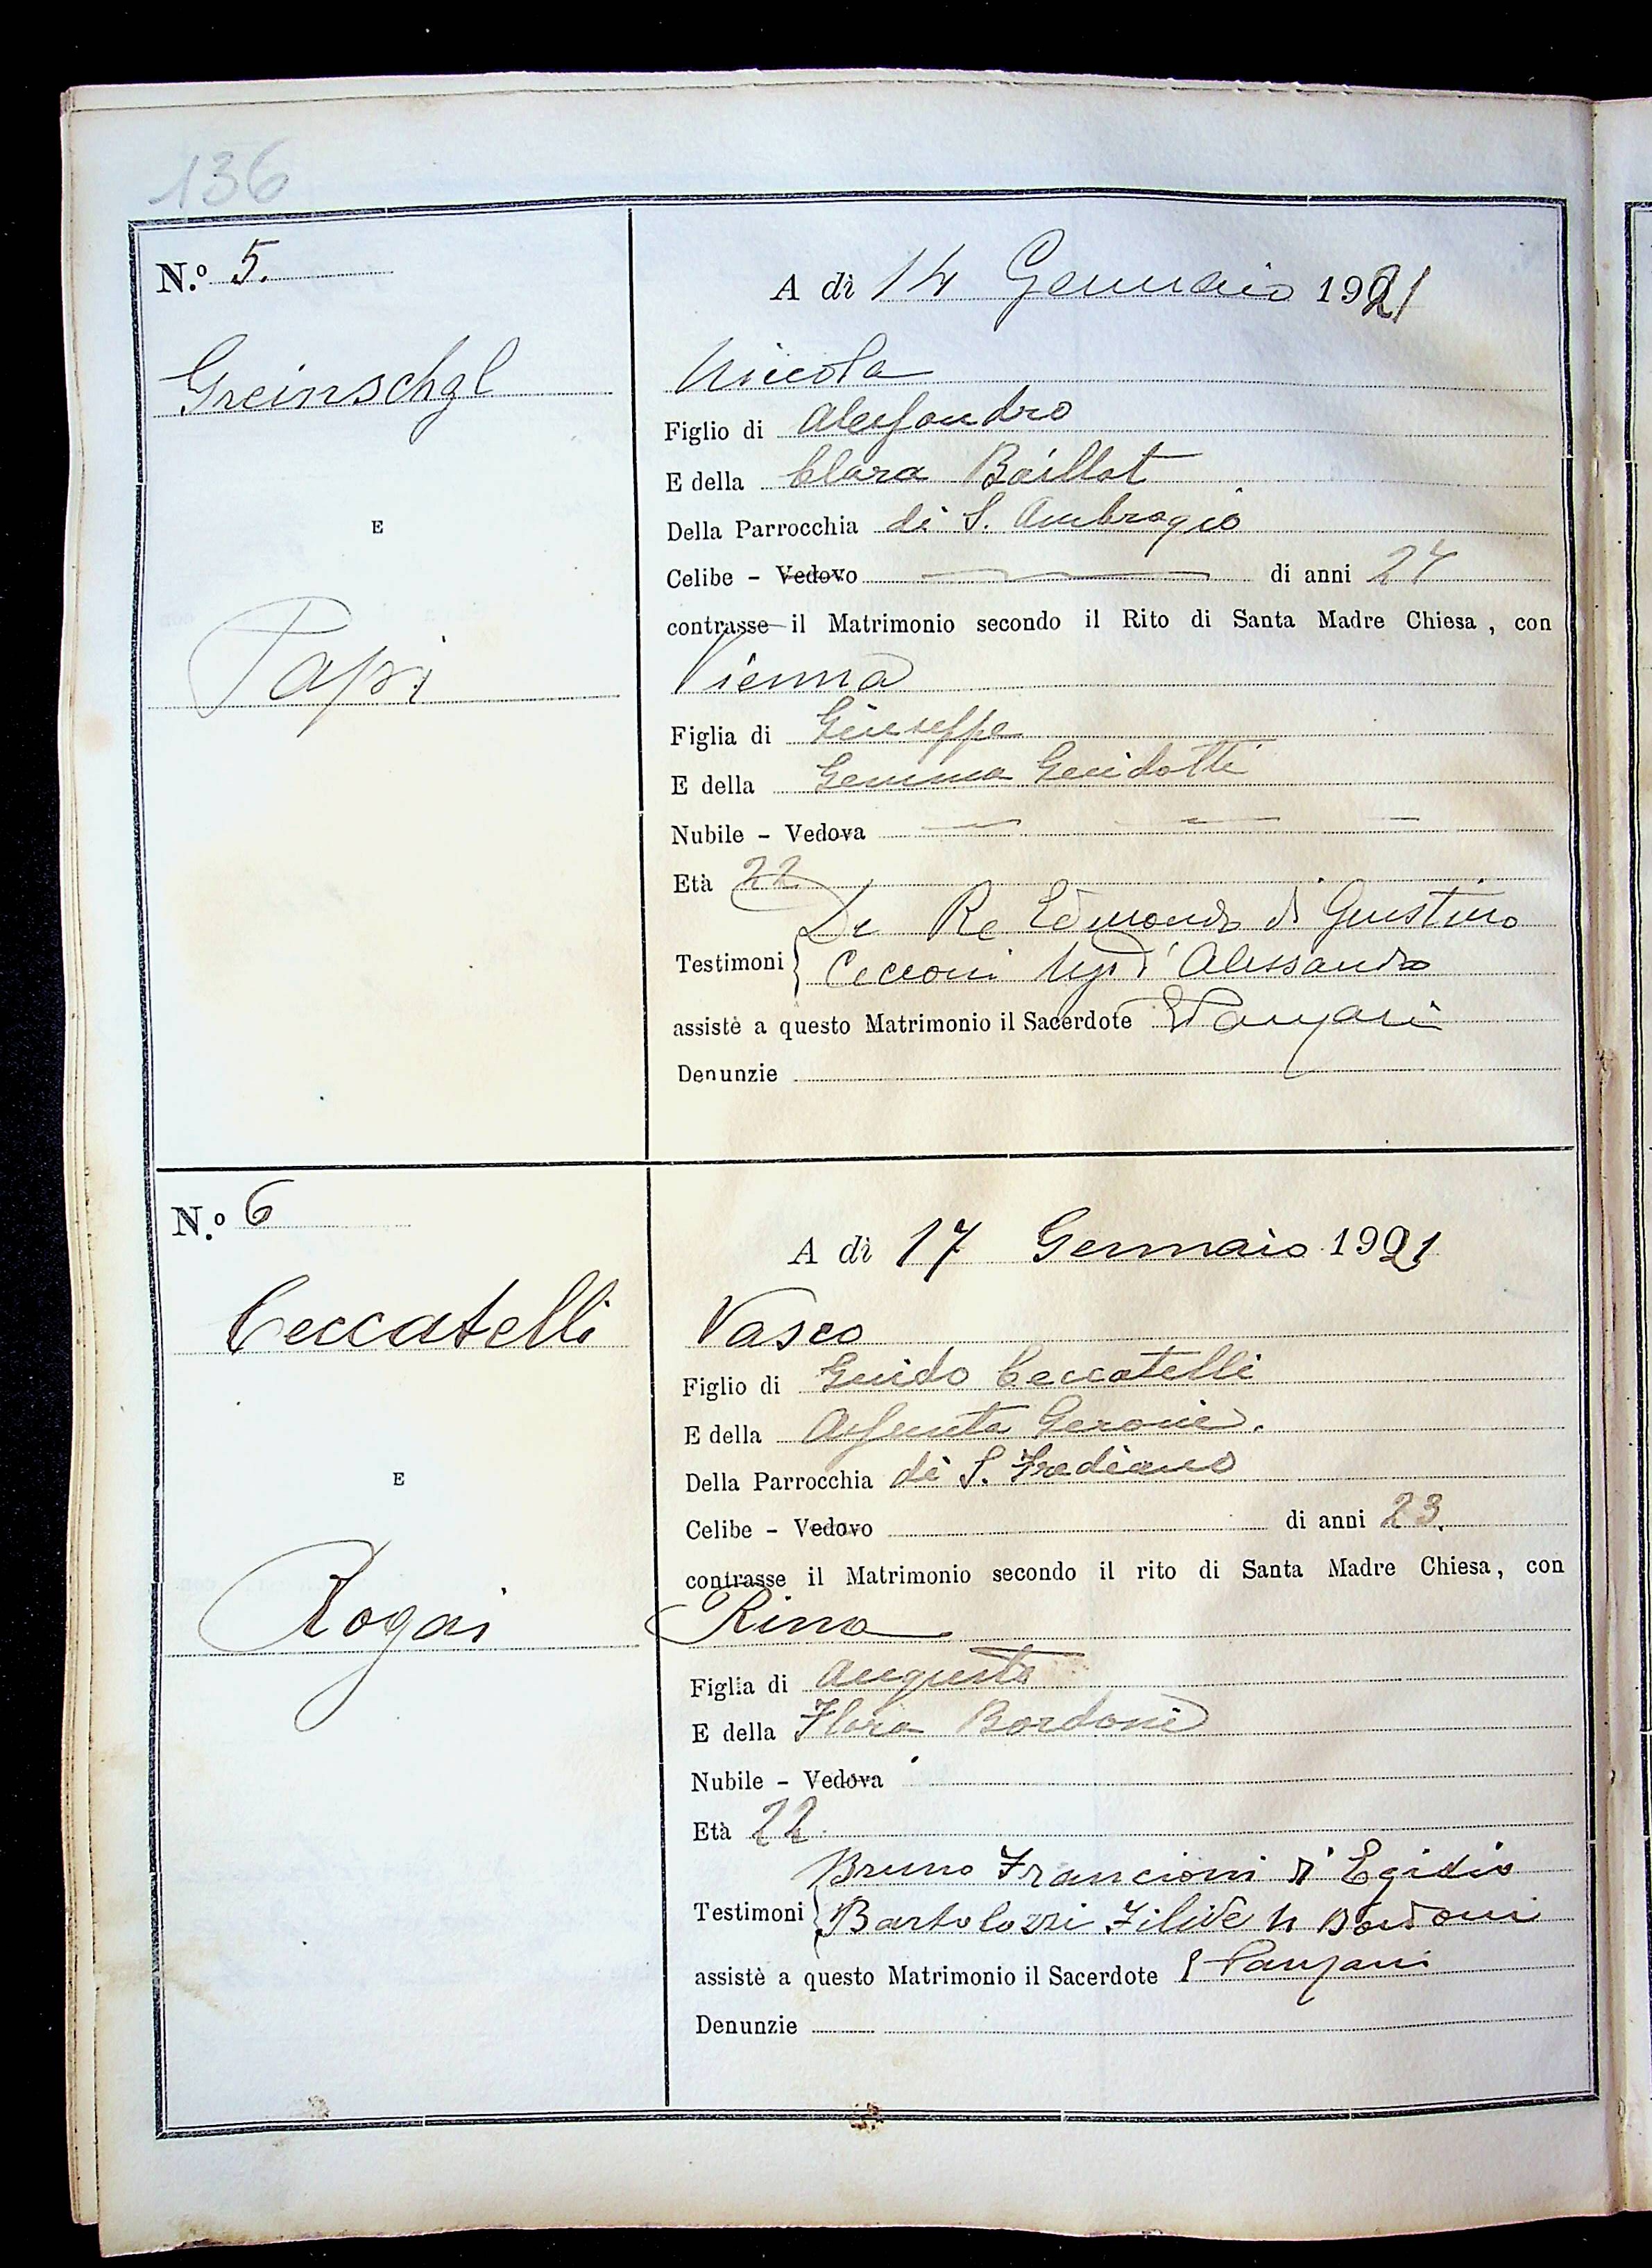 136
N.º 5.
A dì 14 Gennaio 1921
Greinschgl
Niccola
Figlio di Alessandro
E della Clara Baillot
Della Parrocchia di S. Ambrogio
E
Celibe - Vedovo di anni 24
contrasse il Matrimonio secondo il Rito di Santa Madre Chiesa, con
Papi
Vienna
Figlia di Giuseppe
E della Gemma Guidotti
Nubile - Vedova
Età 22
De Re Edmondo di Giustino
Testimoni
Cecconi Ugo d'Alessandro
assistè a questo Matrimonio il Sacerdote Panzani
Denunzie
N.º 6
A dì 17 Gennaio 1921
Ceccatelli
Vasco
Figlio di Guido Ceccatelli
E della Assunta
Della Parrocchia di S. Frediano
E
Celibe - Vedovo di anni 23.
contrasse il Matrimonio secondo il rito di Santa Madre Chiesa, con
Rogai
Rina
Figlia di Augusto
E della Flora Bordoni
Nubile - Vedova
Età 22
Bruno Francioni d'Egidio
Testimoni
Bartolozzi Filide n Bordoni
assistè a questo Matrimonio il Sacerdote Panzani
Denunzie